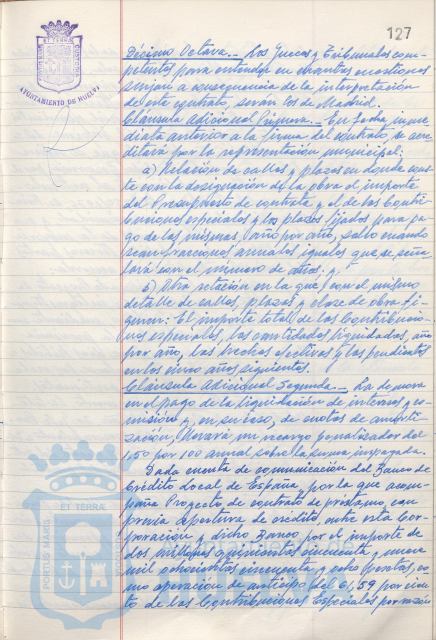 127
ET TERRA
PORTUS MARIS
CUSTODIA
AYUNTAMIENTO DE HUELVA
Décimo Octava.- Los Jueces y Tribunales com-
petentes para entender en cuantas cuestiones
surjan a consecuencia de la interpretación
de este contrato, serán los de Madrid.
Cláusula Adicional Primera.- En fecha inme-
diata anterior a la firma del contrato, se acre-
ditará por la representación municipal:
a) Relación de calles y plazas en donde cons-
te con la designación de la obra el importe
del Presupuesto de contrata y el de las Contri-
buciones especiales y los plazos fijados para pa-
go de las mismas, año por año, salvo cuando
sean fracciones anuales iguales que se seña-
lará con el número de años. y
b) Otra relación en la que, con el mismo
detalle de calles, plazas y clase de obra fi-
guren: El importe total de las Contribucio-
nes especiales, las cantidades liquidadas, año
por año, las hechas efectivas y las pendientes
en los cinco años siguientes.
Cláusula Adicional Segunda.- La demora
en el pago de la liquidación de intereses y co-
misión y, en su caso, de cuotas de amorti-
zación, llevará un recargo penalizador del
1,50 por 100 anual sobre la suma impagada.
Dada cuenta de comunicación del Banco de
Crédito Local de España, por la que acom-
paña Proyecto de contrato de préstamo, con
previa apertura de crédito, entre esta Cor-
poración y dicho Banco, por el importe de
dos millones quinientas cincuenta y nueve
mil ochocientas cincuenta y ocho pesetas, co-
mo operación de anticipo del 61,59 por cien-
to de las Contribuciones Especiales por razón
ET TERRA
PORTUS MARIS